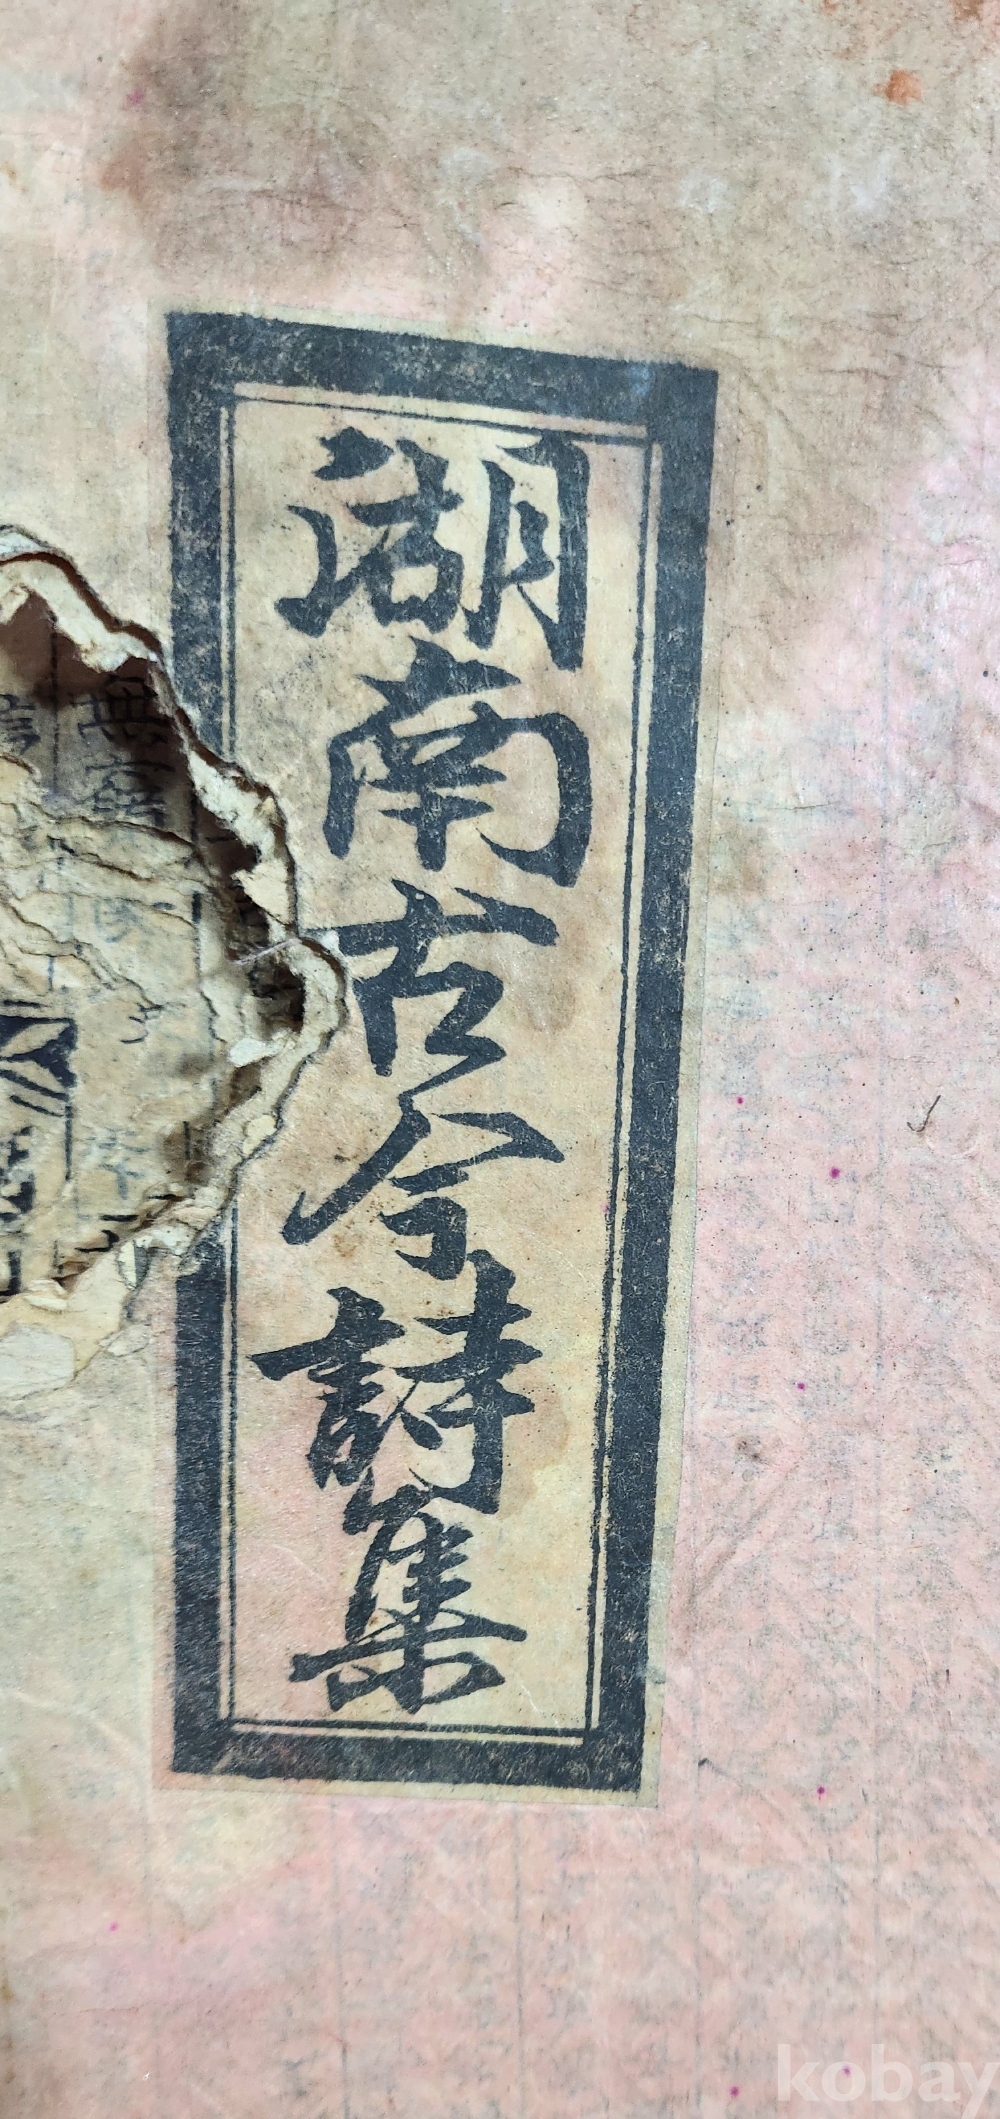 湖南古今詩集
kobay